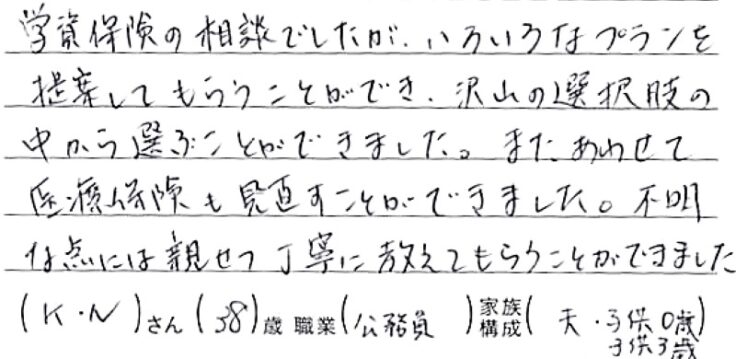 学資保険の相談でしたが、いろいろなプランを
提案してもらうことができ、沢山の選択肢の
中から選ぶことができました。またあわせて
医療保険も見直すことができました。不明
な点には親せつ丁寧に教えてもらうことができました
(K・N)さん(38)歳 職業(公務員)家族構成(夫・子供0歳)
子供3歳